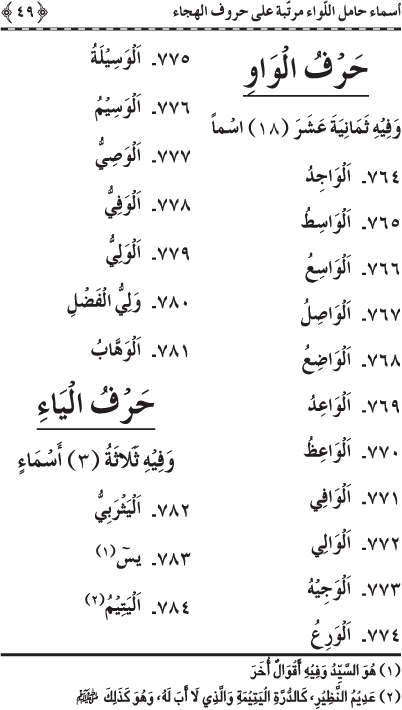 أسماء حامل اللّواء مرتّبة على حروف الهجاء ﴿٤٩﴾
حَرْفُ الْوَاوِ
وَفِيْهِ ثَمَانِيَةَ عَشَرَ (١٨) اسْماً
٧٦٤۔ اَلْوَاجِدُ
٧٦٥۔ اَلْوَاسِطُ
٧٦٦۔ اَلْوَاسِعُ
٧٦٧۔ اَلْوَاصِلُ
٧٦٨۔ اَلْوَاضِعُ
٧٦٩۔ اَلْوَاعِدُ
٧٧٠۔ اَلْوَاعِظُ
٧٧١۔ اَلْوَافِي
٧٧٢۔ اَلْوَالِي
٧٧٣۔ اَلْوَجِيْهُ
٧٧٤۔ اَلْوَرِعُ
٧٧٥۔ اَلْوَسِيْلَةُ
٧٧٦۔ اَلْوَسِيْمُ
٧٧٧۔ اَلْوَصِيُّ
٧٧٨۔ اَلْوَفِيُّ
٧٧٩۔ اَلْوَلِيُّ
٧٨٠۔ وَلِيُّ الْفَضْلِ
٧٨١۔ اَلْوَهَّابُ
حَرْفُ الْيَاءِ
وَفِيْهِ ثَلَاثَةُ (٣) أَسْمَاءٍ
٧٨٢۔ اَلْيَثْرَبِيُّ
٧٨٣۔ يسٓ (١)
٧٨٤۔ اَلْيَتِيْمُ (٢)
(١) هُوَ السَّيِّدُ وَفِيْهِ أَقْوَالٌ أُخَرَ
(٢) عَدِيْمُ النَّظِيْرِ، كَالدُّرَّةِ الْيَتِيْمَةِ وَالَّذِي لَا أَبَ لَهُ، وَهُوَ كَذَلِكَ ﷺ